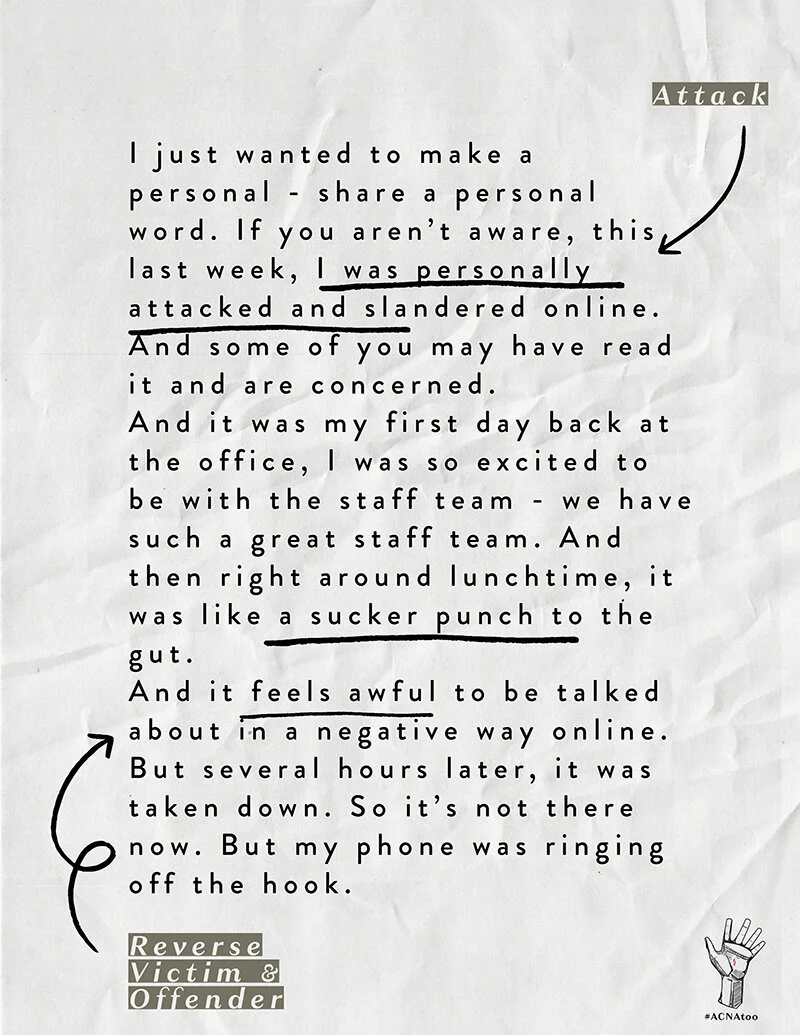 Attack
I just wanted to make a
personal - share a personal
word. If you aren't aware, this
last week, I was personally
attacked and slandered online.
And some of you may have read
it and are concerned.
And it was my first day back at
the office, I was so excited to
be with the staff team - we have
such a great staff team. And
then right around lunchtime, it
was like a sucker punch to the
gut.
And it feels awful to be talked
about in a negative way online.
But several hours later, it was
taken down. So it's not there
now. But my phone was ringing
off the hook.
Reverse
Victim &
Offender
#ACNAtoo